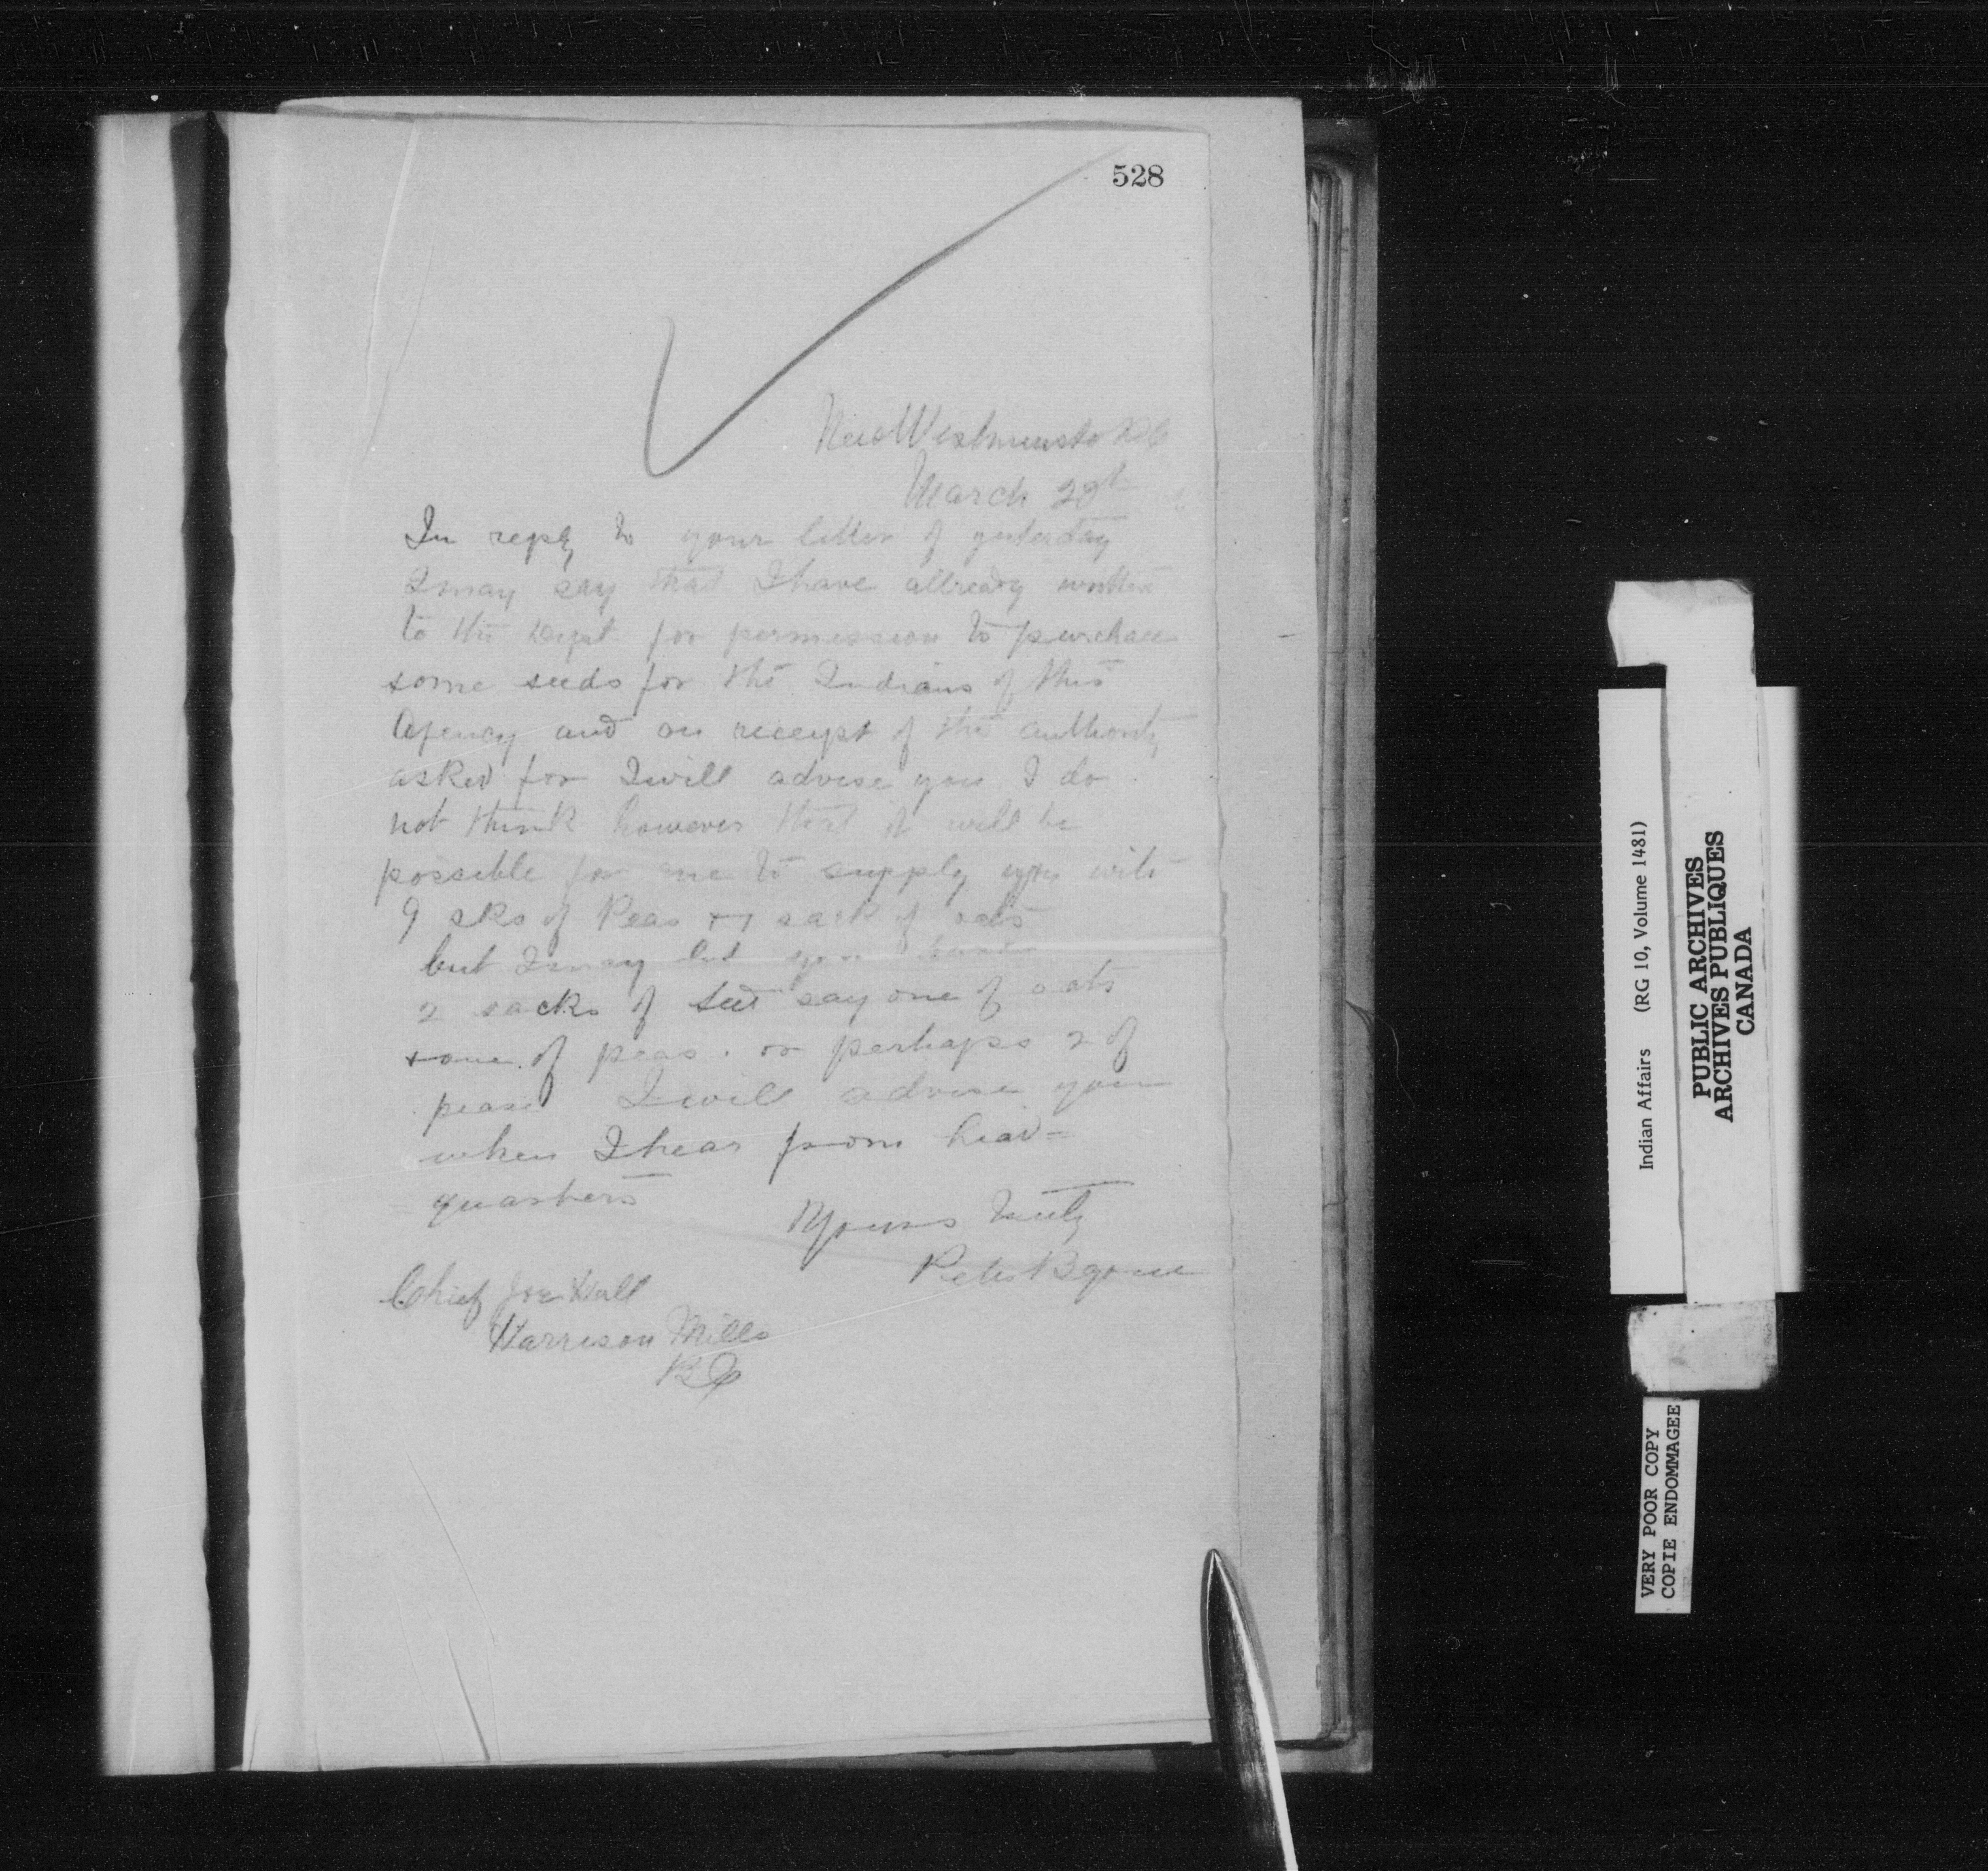 528
New Westminster BC
March 20th
In reply to your letter of yesterday
I may say that I have allready written
to the Dept for permission to purchase
some seeds for the Indians of this
Agency and on receipt of the authority
asked for I will advise you I do
not think however that it will be
possible for me to supply you with
9 sks of Peas + 1 sack of oats
but I may let you have
2 sacks of seed say one of oats
+ one of peas. or perhaps 2 of
peas I will advise you
when I hear from head=
= quarters
Yours truly
Peter Byrne
Chief Joe Hall
Harrison Mills
BC
Indian Affairs (RG 10, Volume 1481)
PUBLIC ARCHIVES
ARCHIVES PUBLIQUES
CANADA
VERY POOR COPY
COPIE ENDOMMAGEE